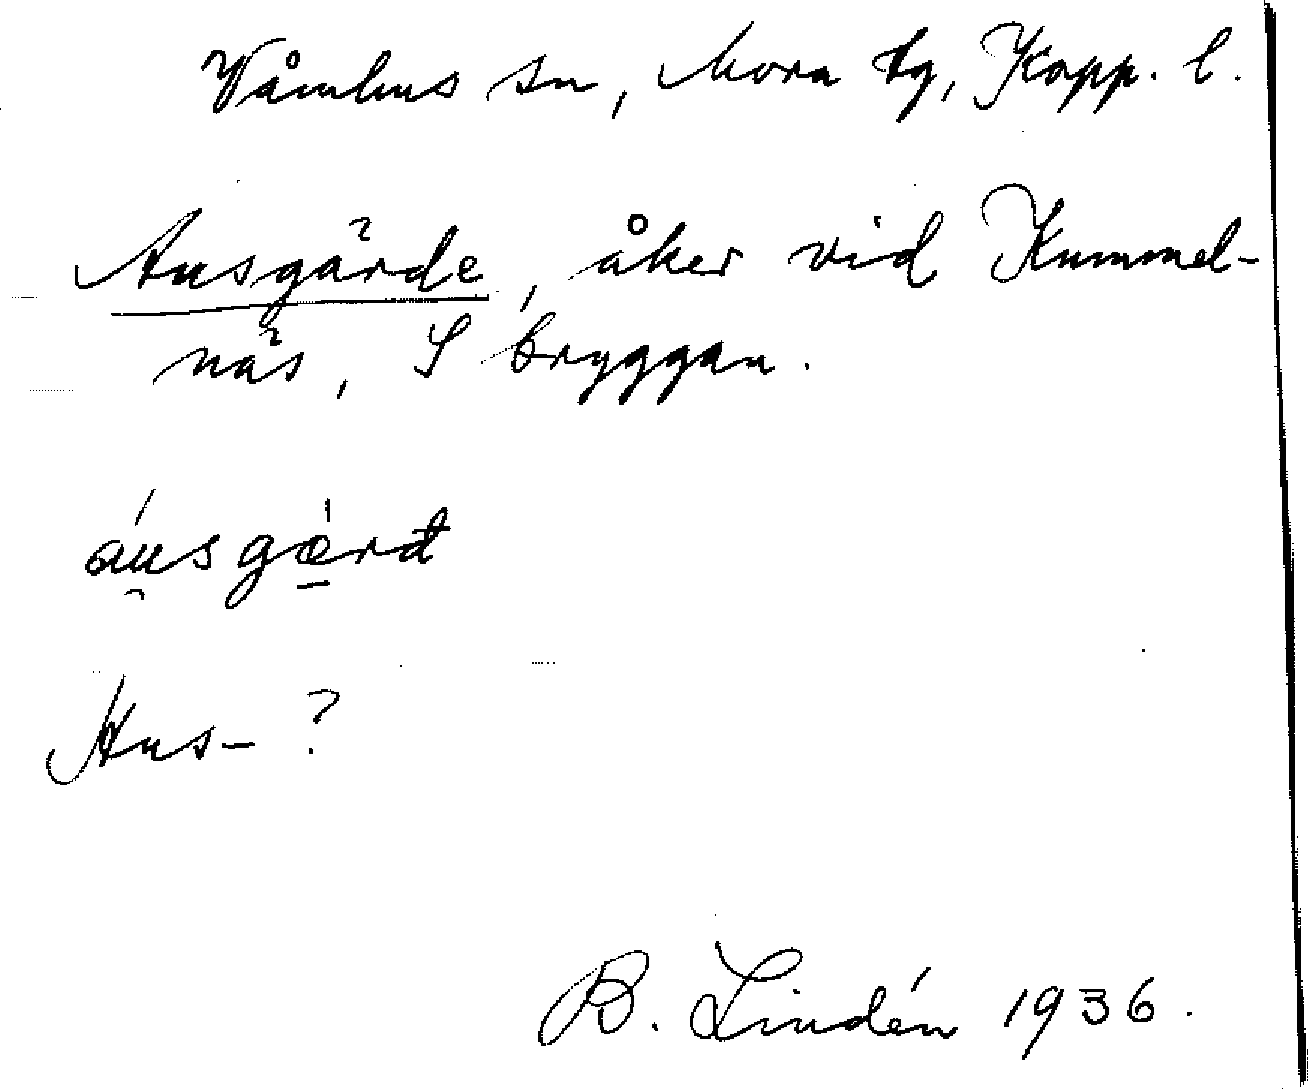 Våmhus sn, Mora tg, Kopp. l.
Ausgärde, åker vid Kummel-
näs, S bryggan.
áu̯sgæ̱̀rđ
Hus- ?
B. Lindén 1936.